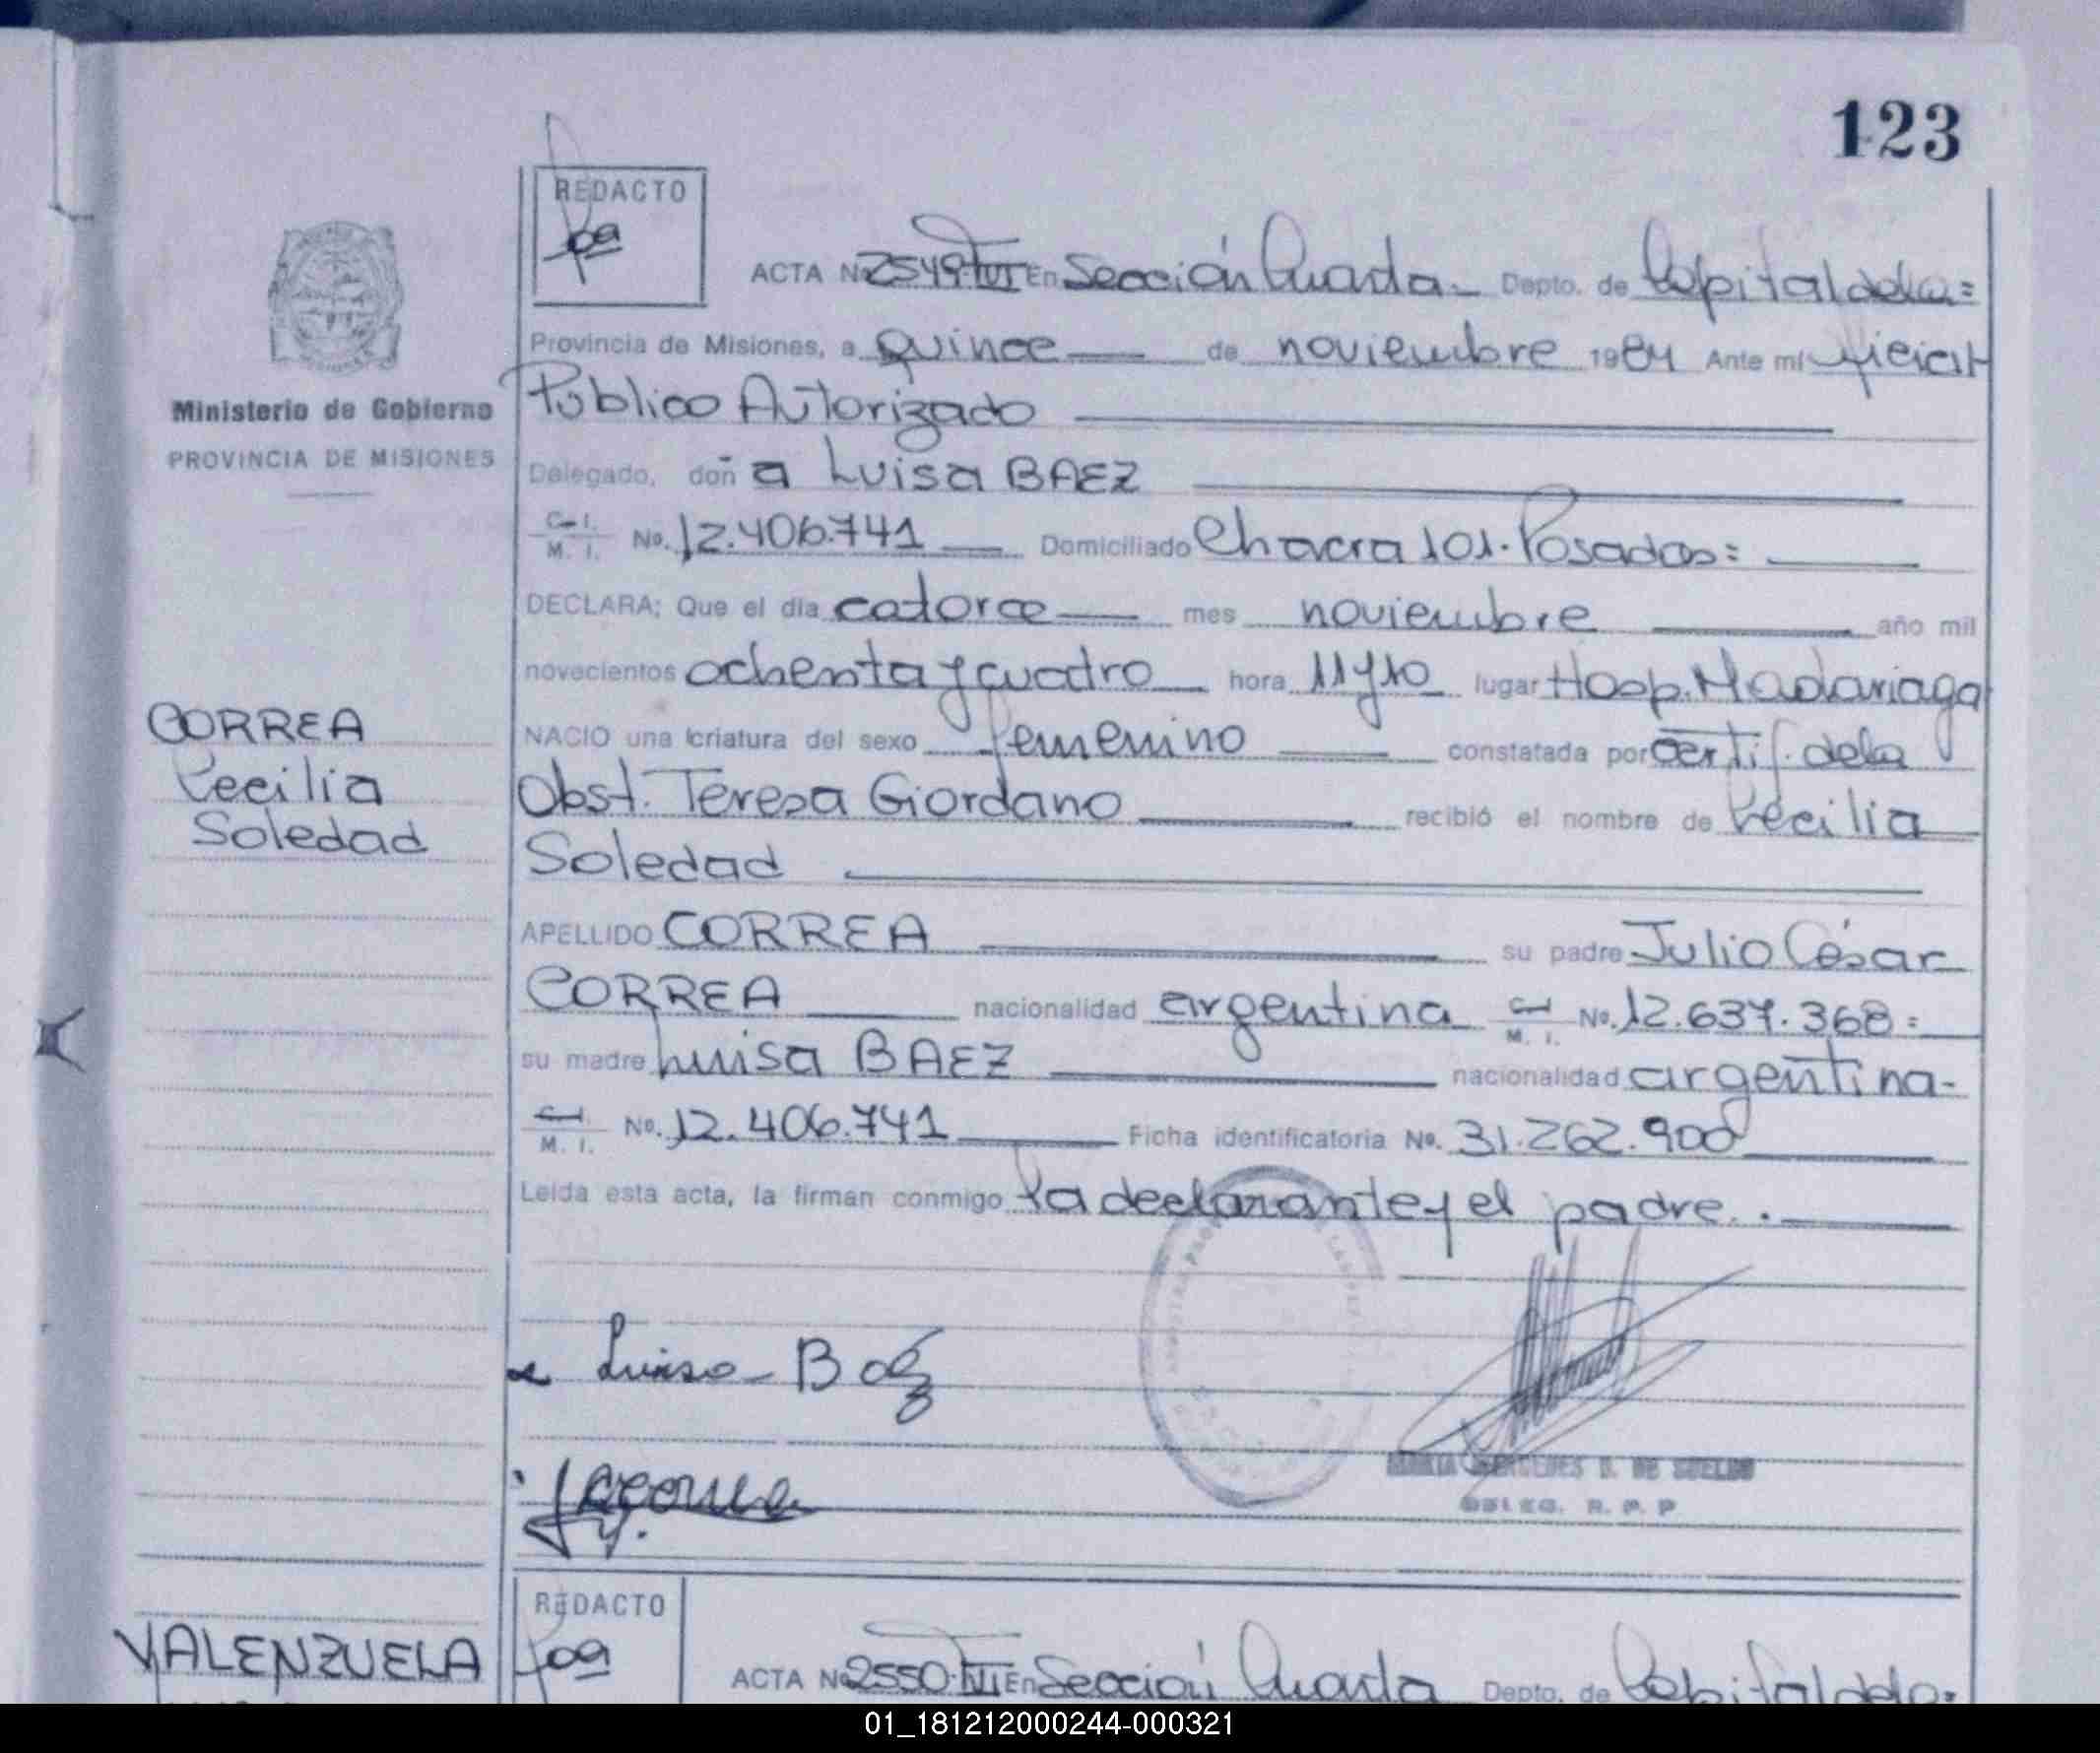 123
REDACTO
ACTA No 2549-TVI En Sección Cuarta.- Depto. de Capital de la=
Provincia de Misiones, a Quince de noviembre 1984 Ante mí
Ministerio de Gobierno
PROVINCIA DE MISIONES
Público Autorizado
Delegado, doña Luisa BAEZ
C.I. M. I. No. 12.406.741 Domiciliado Chacra 101. Posadas=
DECLARA: Que el día catorce mes noviembre año mil
novecientos ochenta y cuatro hora 11 y 10 lugar Hosp. Madariaga
CORREA
Cecilia
Soledad
NACIO una criatura del sexo femenino constatada por Certif. de la
Obst. Teresa Giordano recibió el nombre de Cecilia
Soledad
APELLIDO CORREA su padre Julio César
CORREA nacionalidad argentina C.I. M. I. No. 12.637.368=
su madre Luisa BAEZ nacionalidad argentina-
C.I. M. I. No. 12.406.741 Ficha identificatoria No. 31.262.900
Leída esta acta, la firman conmigo la declarante y el padre..
Luisa Baéz
DE SUELDO
DELEG. R. P. P
VALENZUELA
REDACTO
ACTA No 2550-TVI En Sección Cuarta Depto. de Capital de la=
01_181212000244-000321